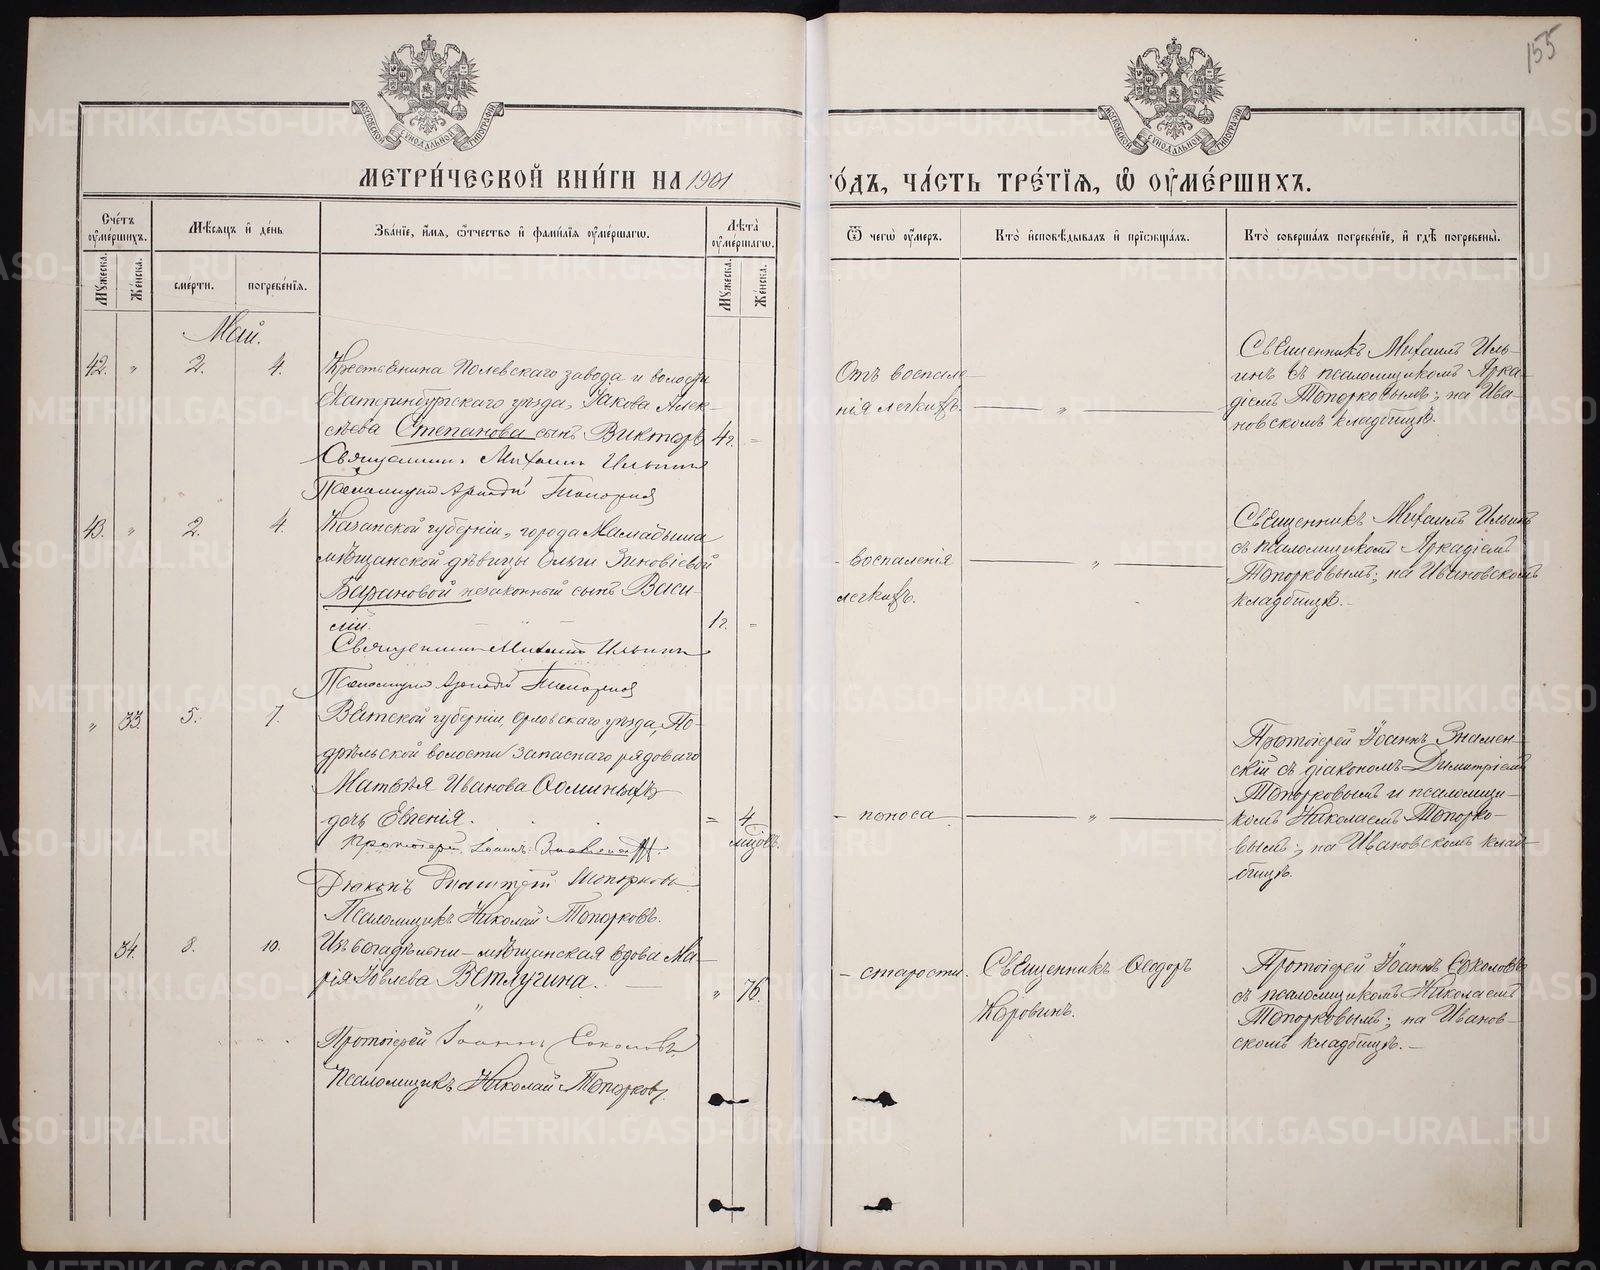 155
МОСКОВСКОЙ СѴНОДАЛЬНОЙ ТИПОГРАФІИ
МОСКОВСКОЙ СѴНОДАЛЬНОЙ ТИПОГРАФІИ
МЕТРИ́ЧЕСКОЙ КНИ́ГИ НА 1901
ГО́ДЪ, ЧА́СТЬ ТРЕ́ТІЯ, Ѽ ОУМЕ́РШИХЪ.
Сче́тъ оумершихъ.
Мꙋжеска.
Же́нска.
Мѣ́сяцъ и де́нь
сме́рти.
погребе́нія.
Зва́ніе, и́мя, о́тчество и фами́лія оуме́ршагѡ.
Лѣта̀ оуме́ршагѡ.
Мꙋжеска.
Же́нска.
Ѿ чегѡ̀ оу́меръ.
Кто̀ исповѣ́дывалъ и пріѡбща́лъ.
Кто̀ соверша́лъ погребе́ніе, и гдѣ̀ погребены̀.
Май.
42. " 2. 4.
Крестьянина Полевскаго завода и волости
Екатеринбургскаго уѣзда, Іакова Алек-
сѣева Степанова сынъ Викторъ 4 г. -
Священникъ Михаилъ Ильинъ
Псаломщикъ Аркадій Топорковъ
Отъ воспале-
нія легкихъ. "
Священникъ Михаилъ Иль-
инъ съ псаломщикомъ Арка-
діемъ Топорковымъ; на Ива-
новскомъ кладбищѣ.
43. " 2. 4.
Казанской губерніи, города Мамадыша
мѣщанской дѣвицы Ольги Зиновіевой
Барановой незаконный сынъ Васи-
лій. 1 г. -
Священникъ Михаилъ Ильинъ
Псаломщикъ Аркадій Топорковъ
- воспаленія
легкихъ. "
Священникъ Михаилъ Ильинъ
съ псаломщикомъ Аркадіемъ
Топорковымъ; на Ивановскомъ
кладбищѣ. -
" 33. 5. 7.
Вятской губерніи, Орловскаго уѣзда, По-
дрѣльской волости запаснаго рядоваго
Матвѣя Иванова Ѳоминыхъ
дочь Евгенія. = 4
мѣсяцовъ.
Протоіерей Іоаннъ Знаменскій.
Діаконъ Димитрій Топорковъ
Псаломщикъ Николай Топорковъ.
- поноса "
Протоіерей Іоаннъ Знамен-
скій съ діакономъ Димитріемъ
Топорковымъ и псаломщи-
комъ Николаемъ Топорко-
вымъ; на Ивановскомъ клад-
бищѣ.
34. 8. 10.
Изъ богадѣльни - мѣщанская вдова Ма-
рія Іовлева Ветлугина. " 76.
Протоіерей Іоаннъ Соколовъ
Псаломщикъ Николай Топорковъ.
- старости.
Священникъ Ѳеодоръ
Коровинъ.
Протоіерей Іоаннъ Соколовъ
съ псаломщикомъ Николаемъ
Топорковымъ; на Иванов-
скомъ кладбищѣ. -
METRIKI.GASO-URAL.RU